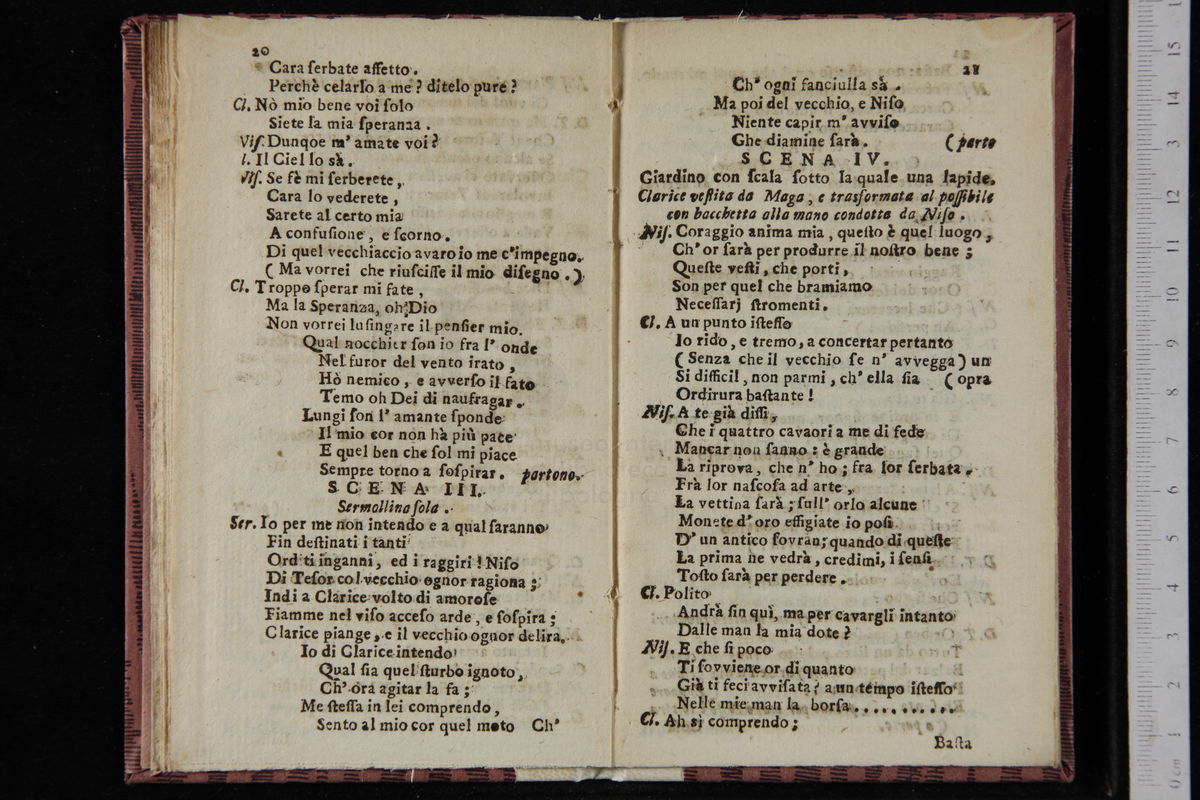 20
Cara ſerbate affetto.
Perchè celarlo a me? ditelo pure?
Cl. Nò mio bene voi ſolo
Siete la mia ſperanza.
Niſ. Dunqoe m' amate voi?
l. Il Ciel lo sà.
Niſ. Se fè mi ſerberete,
Cara lo vederete,
Sarete al certo mia
A confuſione, e ſcorno.
Di quel vecchiaccio avaro io me c'impegno.
( Ma vorrei che riuſciſſe il mio diſegno.)
Cl. Troppo ſperar mi fate,
Ma la Speranza, oh Dio
Non vorrei luſingare il penſier mio.
Qual nocchier ſon io fra l' onde
Nel furor del vento irato,
Hò nemico, e avverſo il fato
Temo oh Dei di naufragar.
Lungi ſon l' amante ſponde
Il mio cor non hà più pace
E quel ben che ſol mi piace
Sempre torno a ſoſpirar. partono.
SCENA III.
Sermollina ſola.
Ser. Io per me non intendo e a qual ſaranno
Fin deſtinati i tanti
Orditi inganni, ed i raggiri! Niſo
Di Teſor col vecchio ognor ragiona;
Indi a Clarice volto di amoroſe
Fiamme nel viſo acceſo arde, e ſoſpira;
Clarice piange, e il vecchio ognor delira.
Io di Clarice intendo
Qual ſia quel ſturbo ignoto,
Ch' ora agitar la fa;
Me ſteſſa in lei comprendo,
Sento al mio cor quel moto Ch'
21
Ch' ogni fanciulla sà.
Ma poi del vecchio, e Niſo
Niente capir m' avviſo
Che diamine ſarà. (parte
SCENA IV.
Giardino con ſcala ſotto la quale una lapide.
Clarice veſtita da Maga, e trasformata al poſſibile
con bacchetta alla mano condotta da Niſo.
Niſ. Coraggio anima mia, queſto è quel luogo,
Ch' or ſarà per produrre il noſtro bene;
Queſte veſti, che porti,
Son per quel che bramiamo
Neceſſarj ſtromenti.
Cl. A un punto iſteſſo
Io rido, e tremo, a concertar pertanto
( Senza che il vecchio ſe n' avvegga) un
Si difficil, non parmi, ch' ella ſia (opra
Ordirura baſtante!
Niſ. A te già diſſi,
Che i quattro cavaori a me di fede
Mancar non ſanno: è grande
La riprova, che n' ho; fra lor ſerbata.
Frà lor naſcoſa ad arte,
La vettina ſarà; ſull' orlo alcune
Monete d' oro effigiate io poſi
D' un antico ſovran; quando di queſte
La prima ne vedrà, credimi, i ſenſi
Toſto ſarà per perdere.
Cl. Polito
Andrà ſin quì, ma per cavargli intanto
Dalle man la mia dote?
Niſ. E che ſi poco
Ti ſovviene or di quanto
Già ti feci avviſata? a un tempo iſteſſo
Nelle mie man la borſa..........
Cl. Ah si comprendo;
Baſta